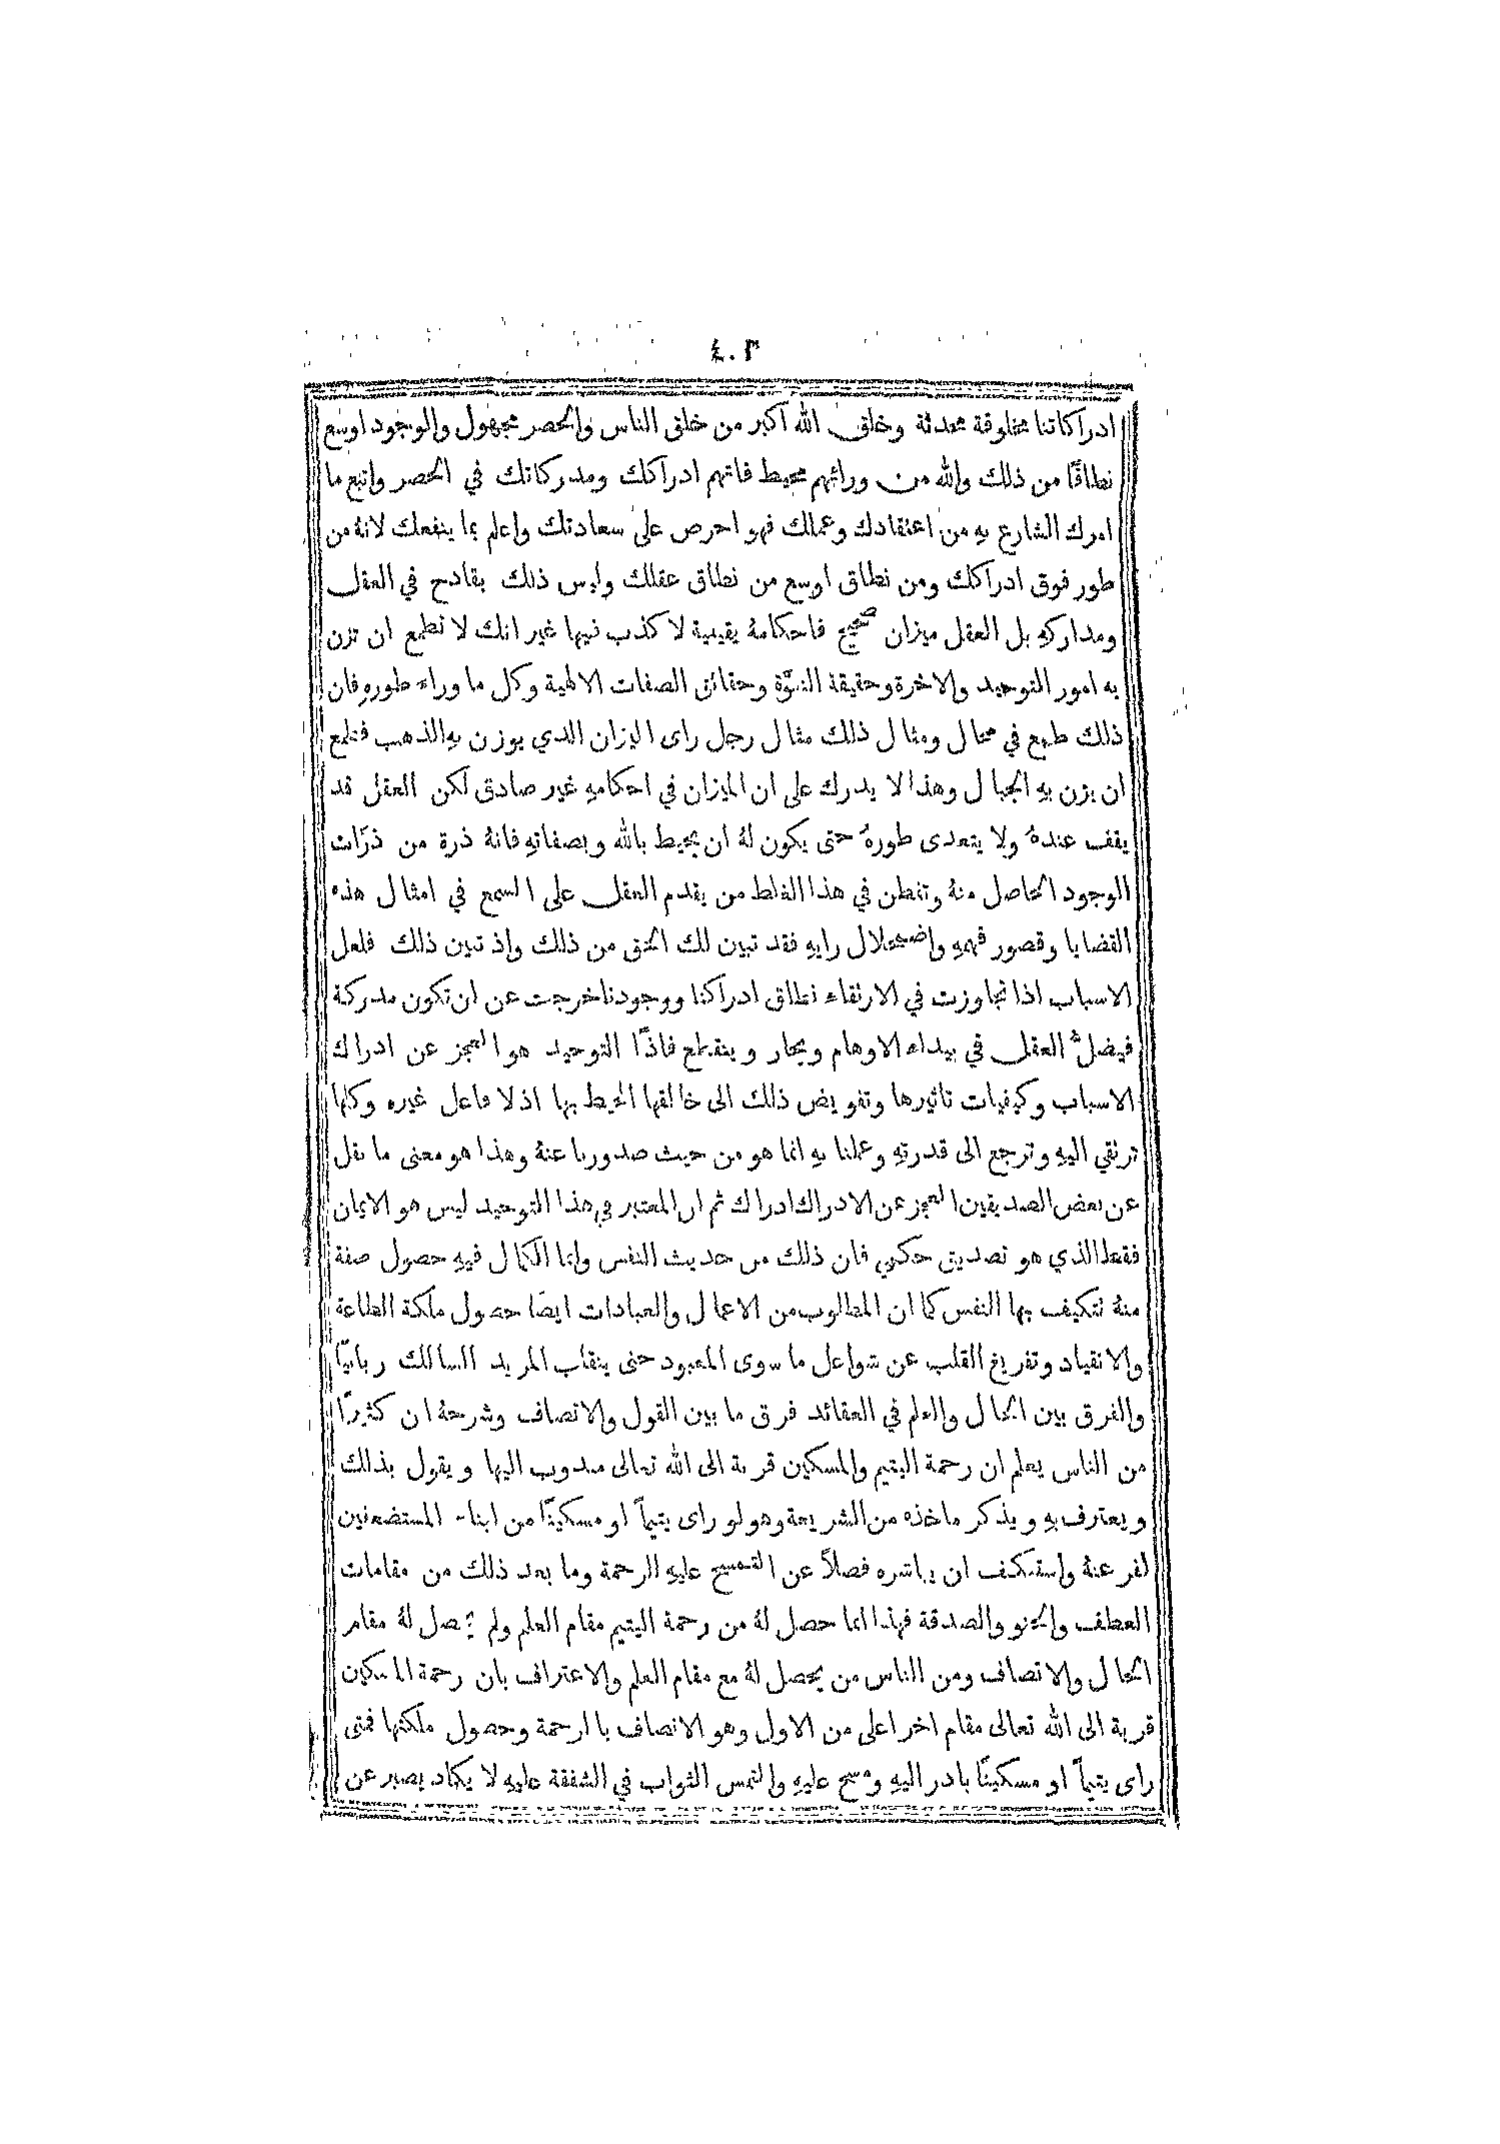 ٤٠٣
ادراكاتنا مخلوقة محدثة وخلق الله اكبر من خلق الناس والحصر مجهول والوجود اوسع
نطاقًا من ذلك والله من ورائهم محيط فاتهم ادراكك ومدركاتك في الحصر واتبع ما
امرك الشارع بهِ من اعتقادك وعملك فهو احرص على سعادتك واعلم بما ينفعك لانهُ من
طور فوق ادراكك ومن نطاق اوسع من نطاق عقلك وليس ذلك بقادح في العقل
ومداركهِ بل العقل ميزان صحيح فاحكامهُ يقينية لا كذب فيها غير انك لا تطمع ان تزن
به امور التوحيد والاخرة وحقيقة النبوّة وحقائق الصفات الالهية وكل ما وراء طورهِ فان
ذلك طمع في محال ومثال ذلك مثال رجل راى الميزان الذي يوزن بهِ الذهب فطمع
ان يزن بهِ الجبال وهذا لا يدرك على ان الميزان في احكامهِ غير صادق لكن العقل قد
يقف عندهُ ولا يتعدى طورهُ حتى يكون لهُ ان يحيط بالله وبصفاتهِ فانهُ ذرة من ذرّات
الوجود الحاصل منهُ وتفطن في هذا الغلط من يقدم العقل على السمع في امثال هذه
القضايا وقصور فهمهِ واضمحلال رايهِ فقد تبين لك الحق من ذلك واذ تبين ذلك فلعل
الاسباب اذا تجاوزت في الارتقاء نطاق ادراكنا ووجودنا خرجت عن ان تكون مدركة
فيضلُّ العقل في بيداء الاوهام ويحار وينقطع فاذًا التوحيد هو العجز عن ادراك
الاسباب وكيفيات تاثيرها وتفويض ذلك الى خالقها المحيط بها اذ لا فاعل غيره وكلها
ترتقي اليهِ وترجع الى قدرتهِ وعملنا بهِ انما هو من حيث صدورنا عنهُ وهذا هو معنى ما نقل
عن بعض الصديقين العجز عن الادراك ادراك ثم ان المعتبر في هذا التوحيد ليس هو الايمان
فقط الذي هو تصديق حكمي فان ذلك من حديث النفس وانما الكمال فيهِ حصول صفة
منهُ تتكيف بها النفس كما ان المطلوب من الاعمال والعبادات ايضًا حصول ملكة الطاعة
والانقياد وتفريغ القلب عن شواغل ما سوى المعبود حتى ينقلب المريد السالك ربانيًّا
والفرق بين الحال والعلم في العقائد فرق ما بين القول والاتصاف وشرحهُ ان كثيرًا
من الناس يعلم ان رحمة اليتيم والمسكين قربة الى الله تعالى مندوب اليها ويقول بذلك
ويعترف بهِ ويذكر ماخذه من الشريعة وهو لو راى يتيمًا او مسكينًا من ابناء المستضعفين
لفر عنهُ واستنكف ان يباشره فضلاً عن التمسح عليهِ الرحمة وما بعد ذلك من مقامات
العطف والحنو والصدقة فهذا انما حصل لهُ من رحمة اليتيم مقام العلم ولم يحصل لهُ مقام
الحال والاتصاف ومن الناس من يحصل لهُ مع مقام العلم والاعتراف بان رحمة المسكين
قربة الى الله تعالى مقام اخر اعلى من الاول وهو الاتصاف بالرحمة وحصول ملكتها فمتى
راى يتيمًا او مسكينًا بادر اليهِ ومسح عليهِ والتمس الثواب في الشفقة عليهِ لا يكاد يصبر عن